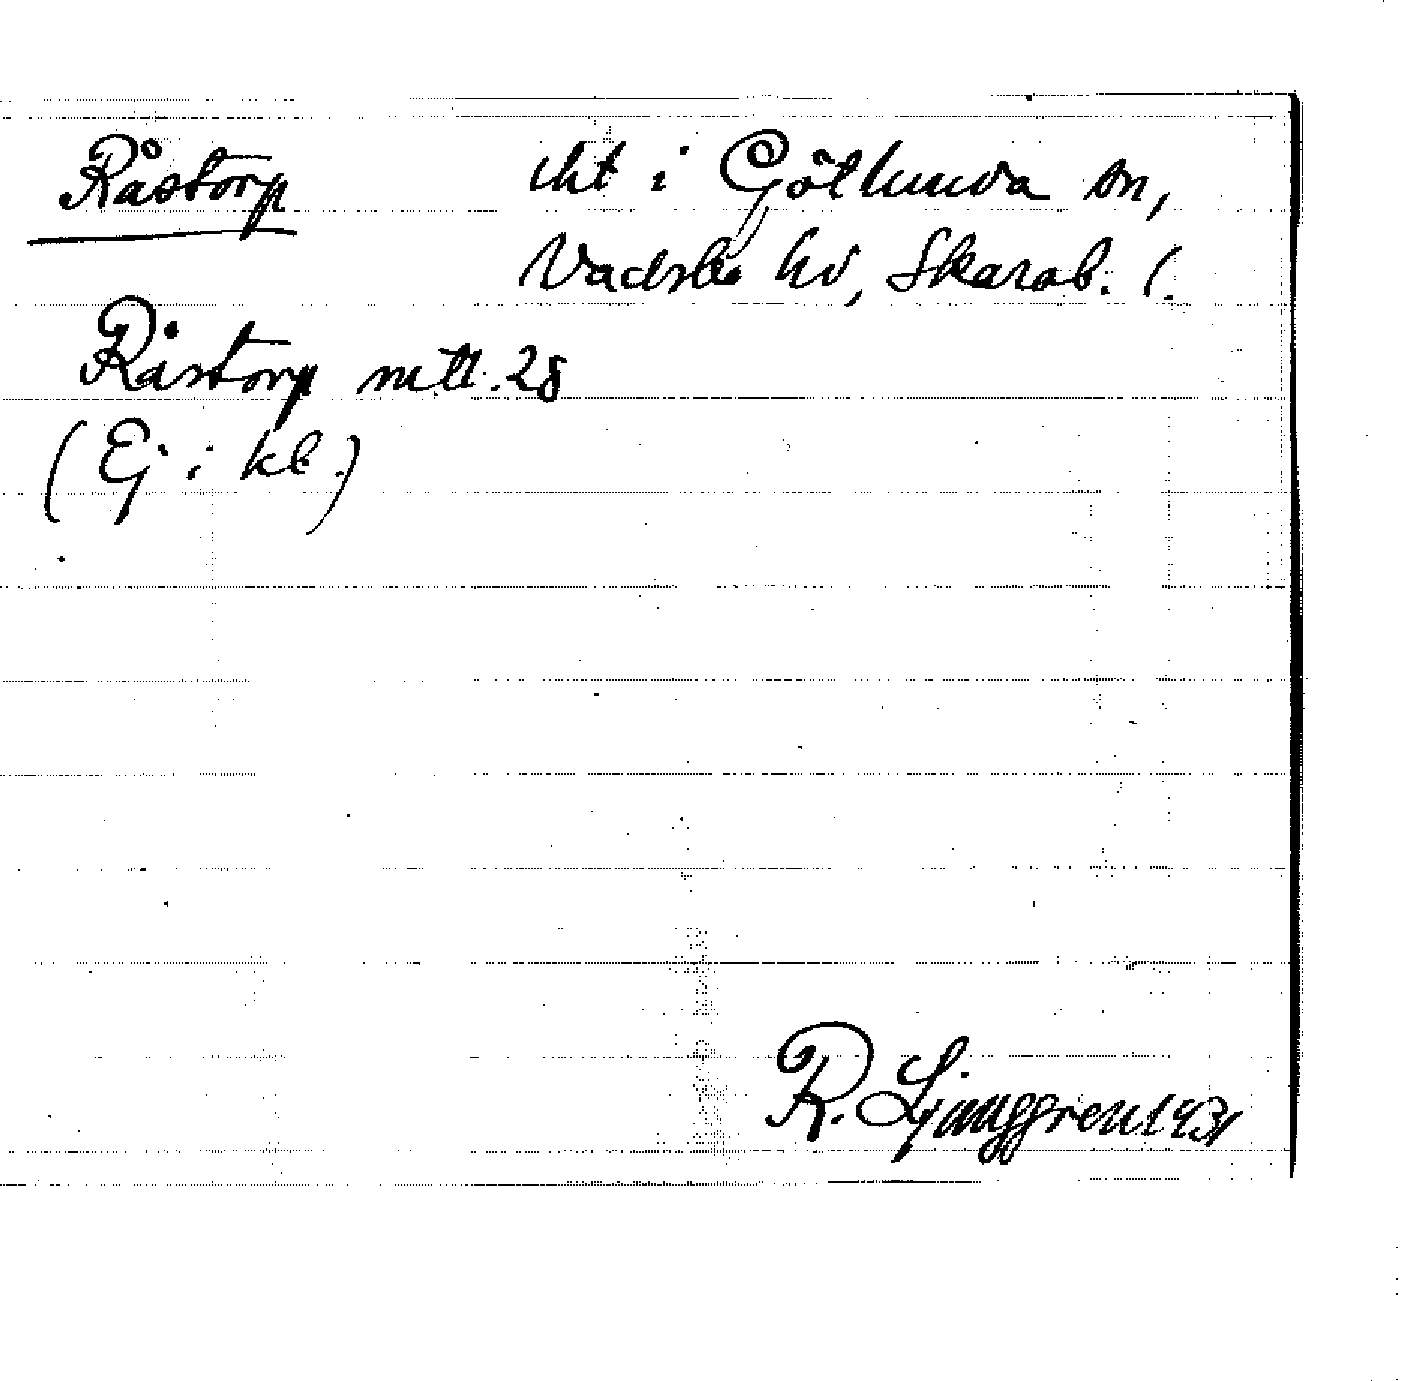 Råstorp
tht i Götlunda sn,
Vadsbo hd, Skarab. l.
Råstorp mtl. 28
(Ej i kb.)
R. Ljunggren 1931